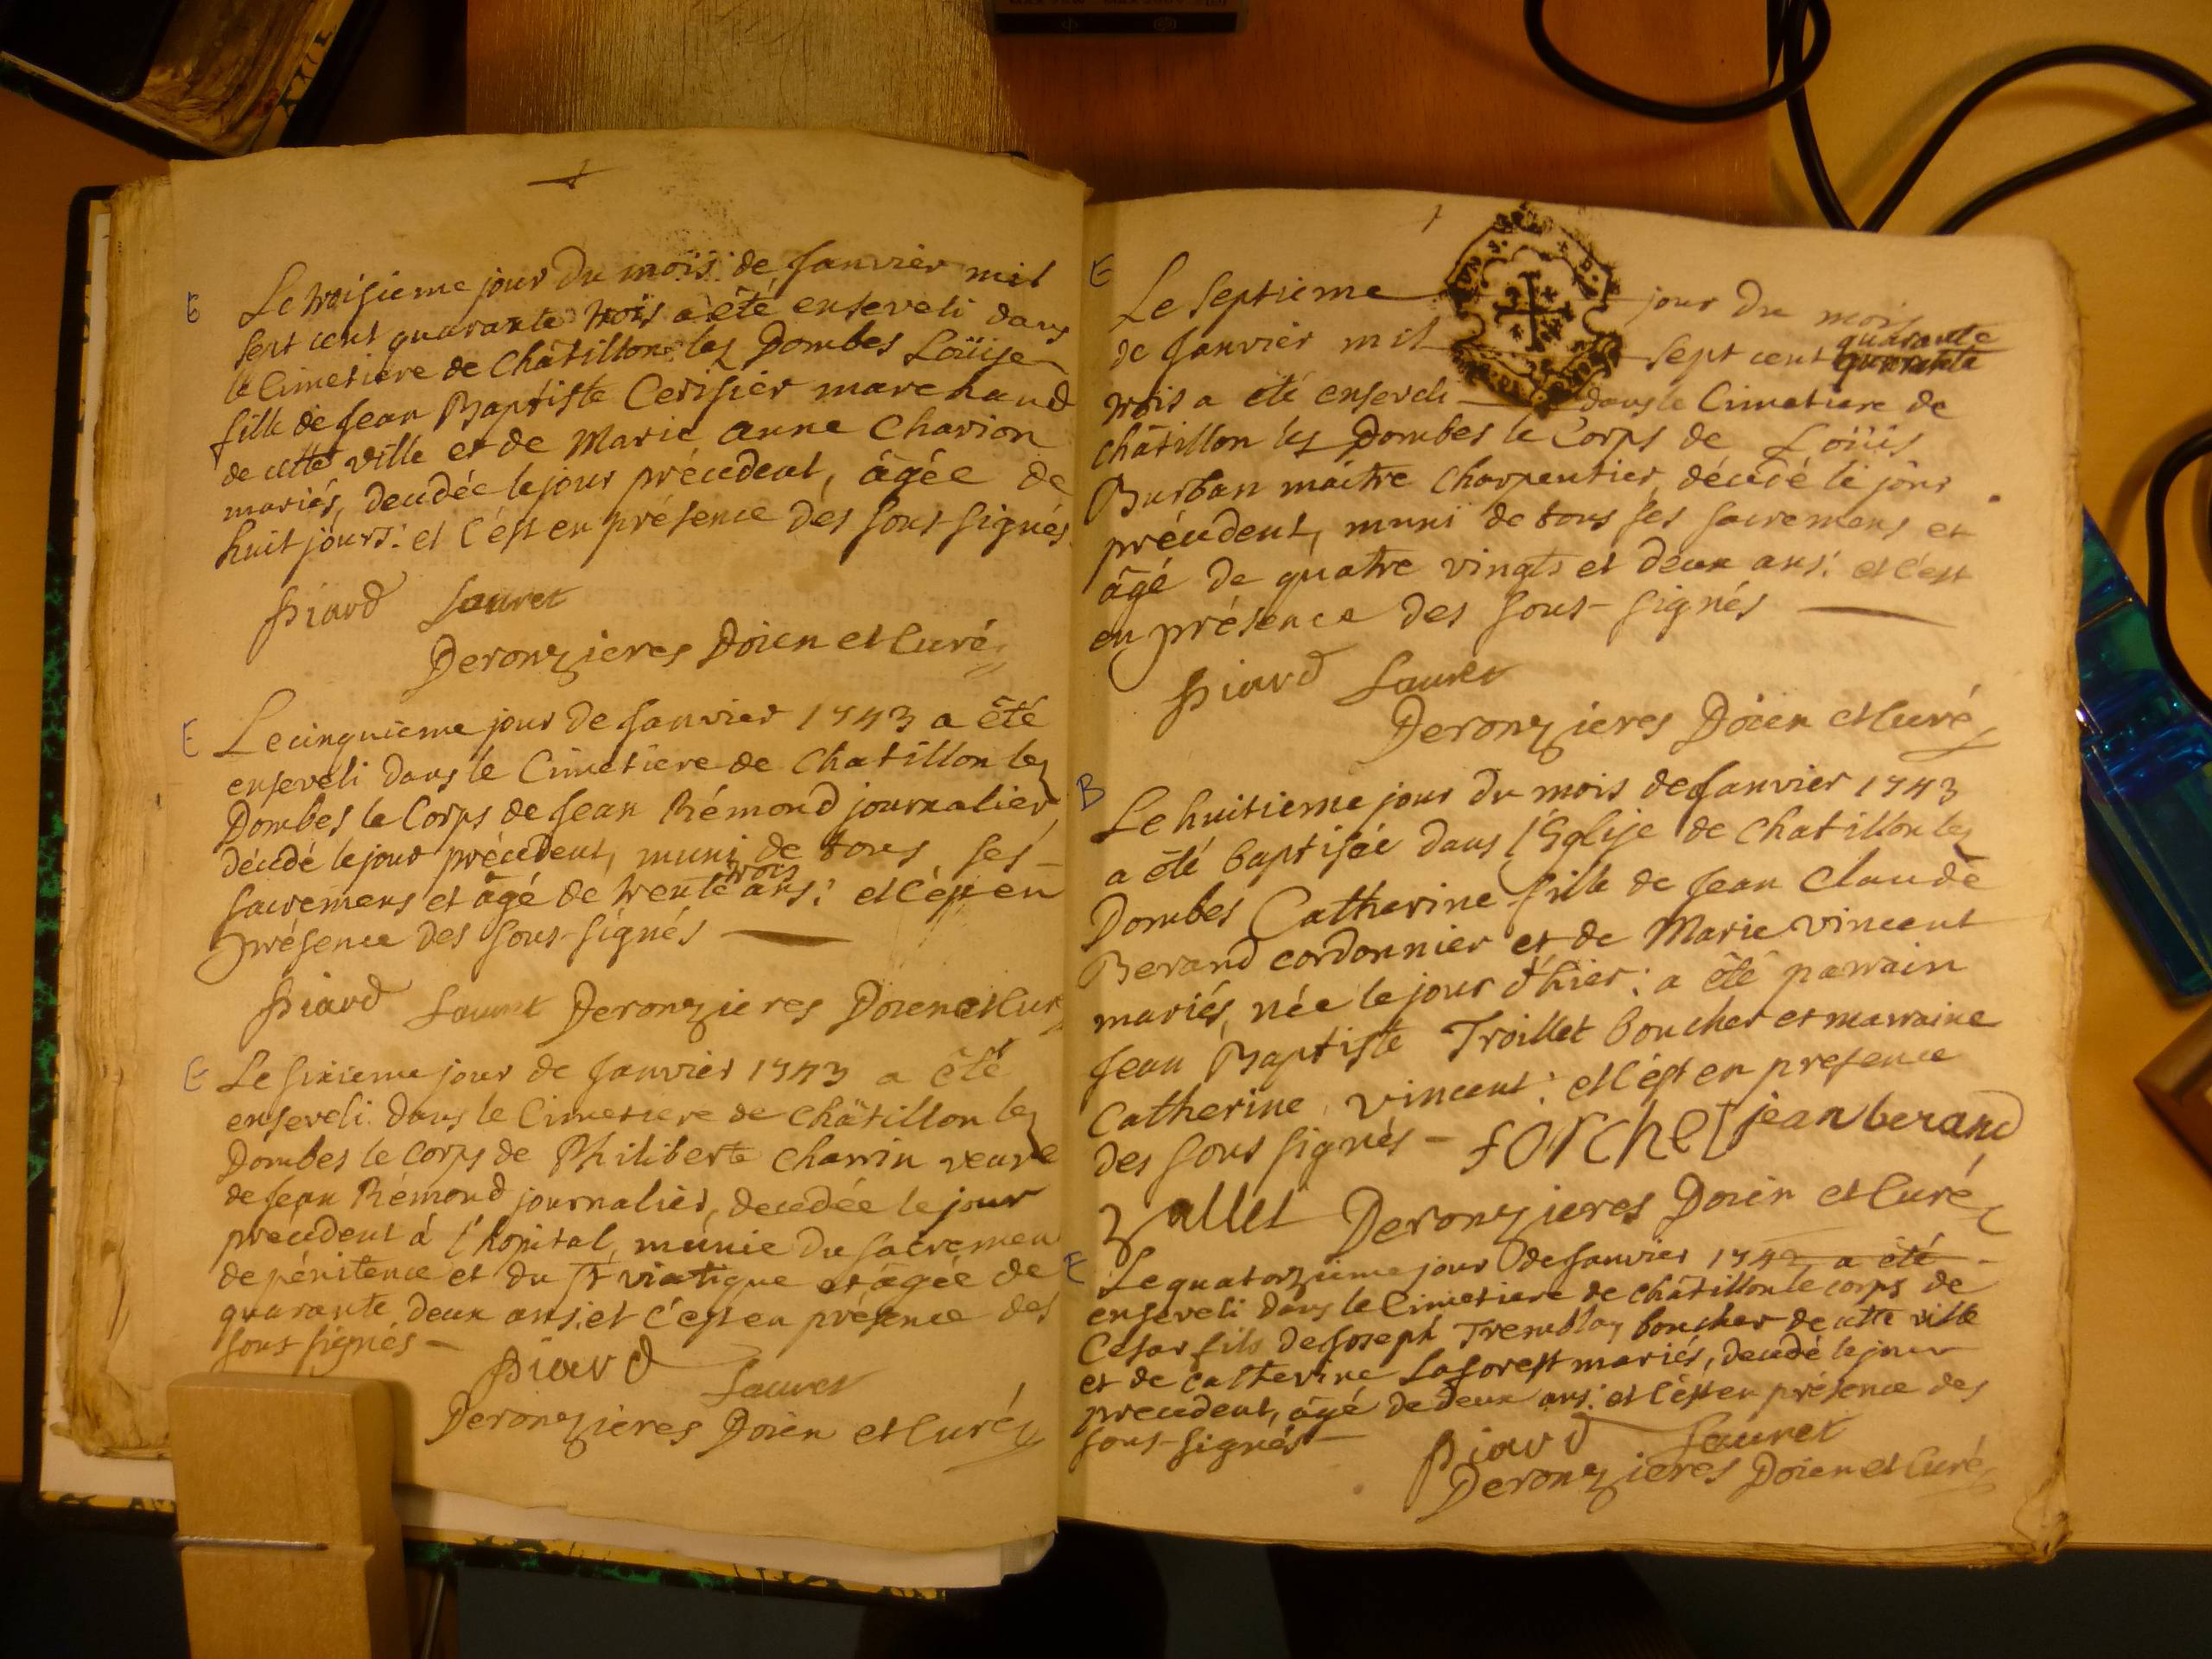 E Le troisieme jour du mois de Janvier mil
sept cent quarante trois a été enseveli dans
le Cimetiere de Châtillon les Dombes Loüise
fille de Jean Baptiste Cerisier marchand
de cette ville et de Marie anne Charion
mariés, decedée le jour précedent, âgée de
huit jours: et c'est en présence des sous-signés.
Piard Sauret
Deronzieres Doien et Curé
E Le cinquieme jour de Janvier 1743 a été
enseveli dans le Cimetiere de Chatillon les
Dombes le Corps de Jean Rémond journalier,
décedé le jour précedent, muni de tous ses
sacremens et âgé de trente trois ans: et c'est en
présence des sous-signés
Piard Sauret Deronzieres Doien et Curé
E Le sixieme jour de Janvier 1743 a été
enseveli dans le Cimetiere de châtillon les
Dombes le corps de Philiberte Charrin veuve
de Jean Rémond journalier, decedée le jour
précedent à l'hopital, munie du sacremen
de pénitence et du St viatique et âgée de
quarante deux ans: et c'est en présence des
sous signés
Piard Sauret
Deronzieres Doien et Curé
E Le septieme jour du mois
de Janvier mil sept cent quarante quarante
trois a été enseveli dans le Cimetiere de
châtillon les Dombes le Corps de Loüis
Burban maître Charpentier, décedé le jour
précedent, muni de tous ses sacremens et
âgé de quatre vingts et deux ans: et c'est
en présence des sous-signés
Piard Sauret
Deronzieres Doien et Curé
B Le huitieme jour du mois de Janvier 1743
a été baptisée dans l'Eglise de Chatillon les
Dombes Catherine fille de Jean Claude
Berand cordonnier et de Marie vincent
mariés, née le jour d'hier: a été parrain
Jean Baptiste Troillet boucher et marraine
Catherine vincent: et c'est en presence
des sous signés - forchet jean berand
Deronzieres Doien et Curé
E Le quatorzieme jour de Janvier 1743 a été
enseveli dans le Cimetiere de châtillon le corps de
Cesar fils de Joseph Tremblay boucher de cette ville
et de catherine Laforest mariés, decedé le jour
precedent, âgé de deux ans: et c'est en présence des
sous-signés
Piard Sauret
Deronzieres Doien et Curé